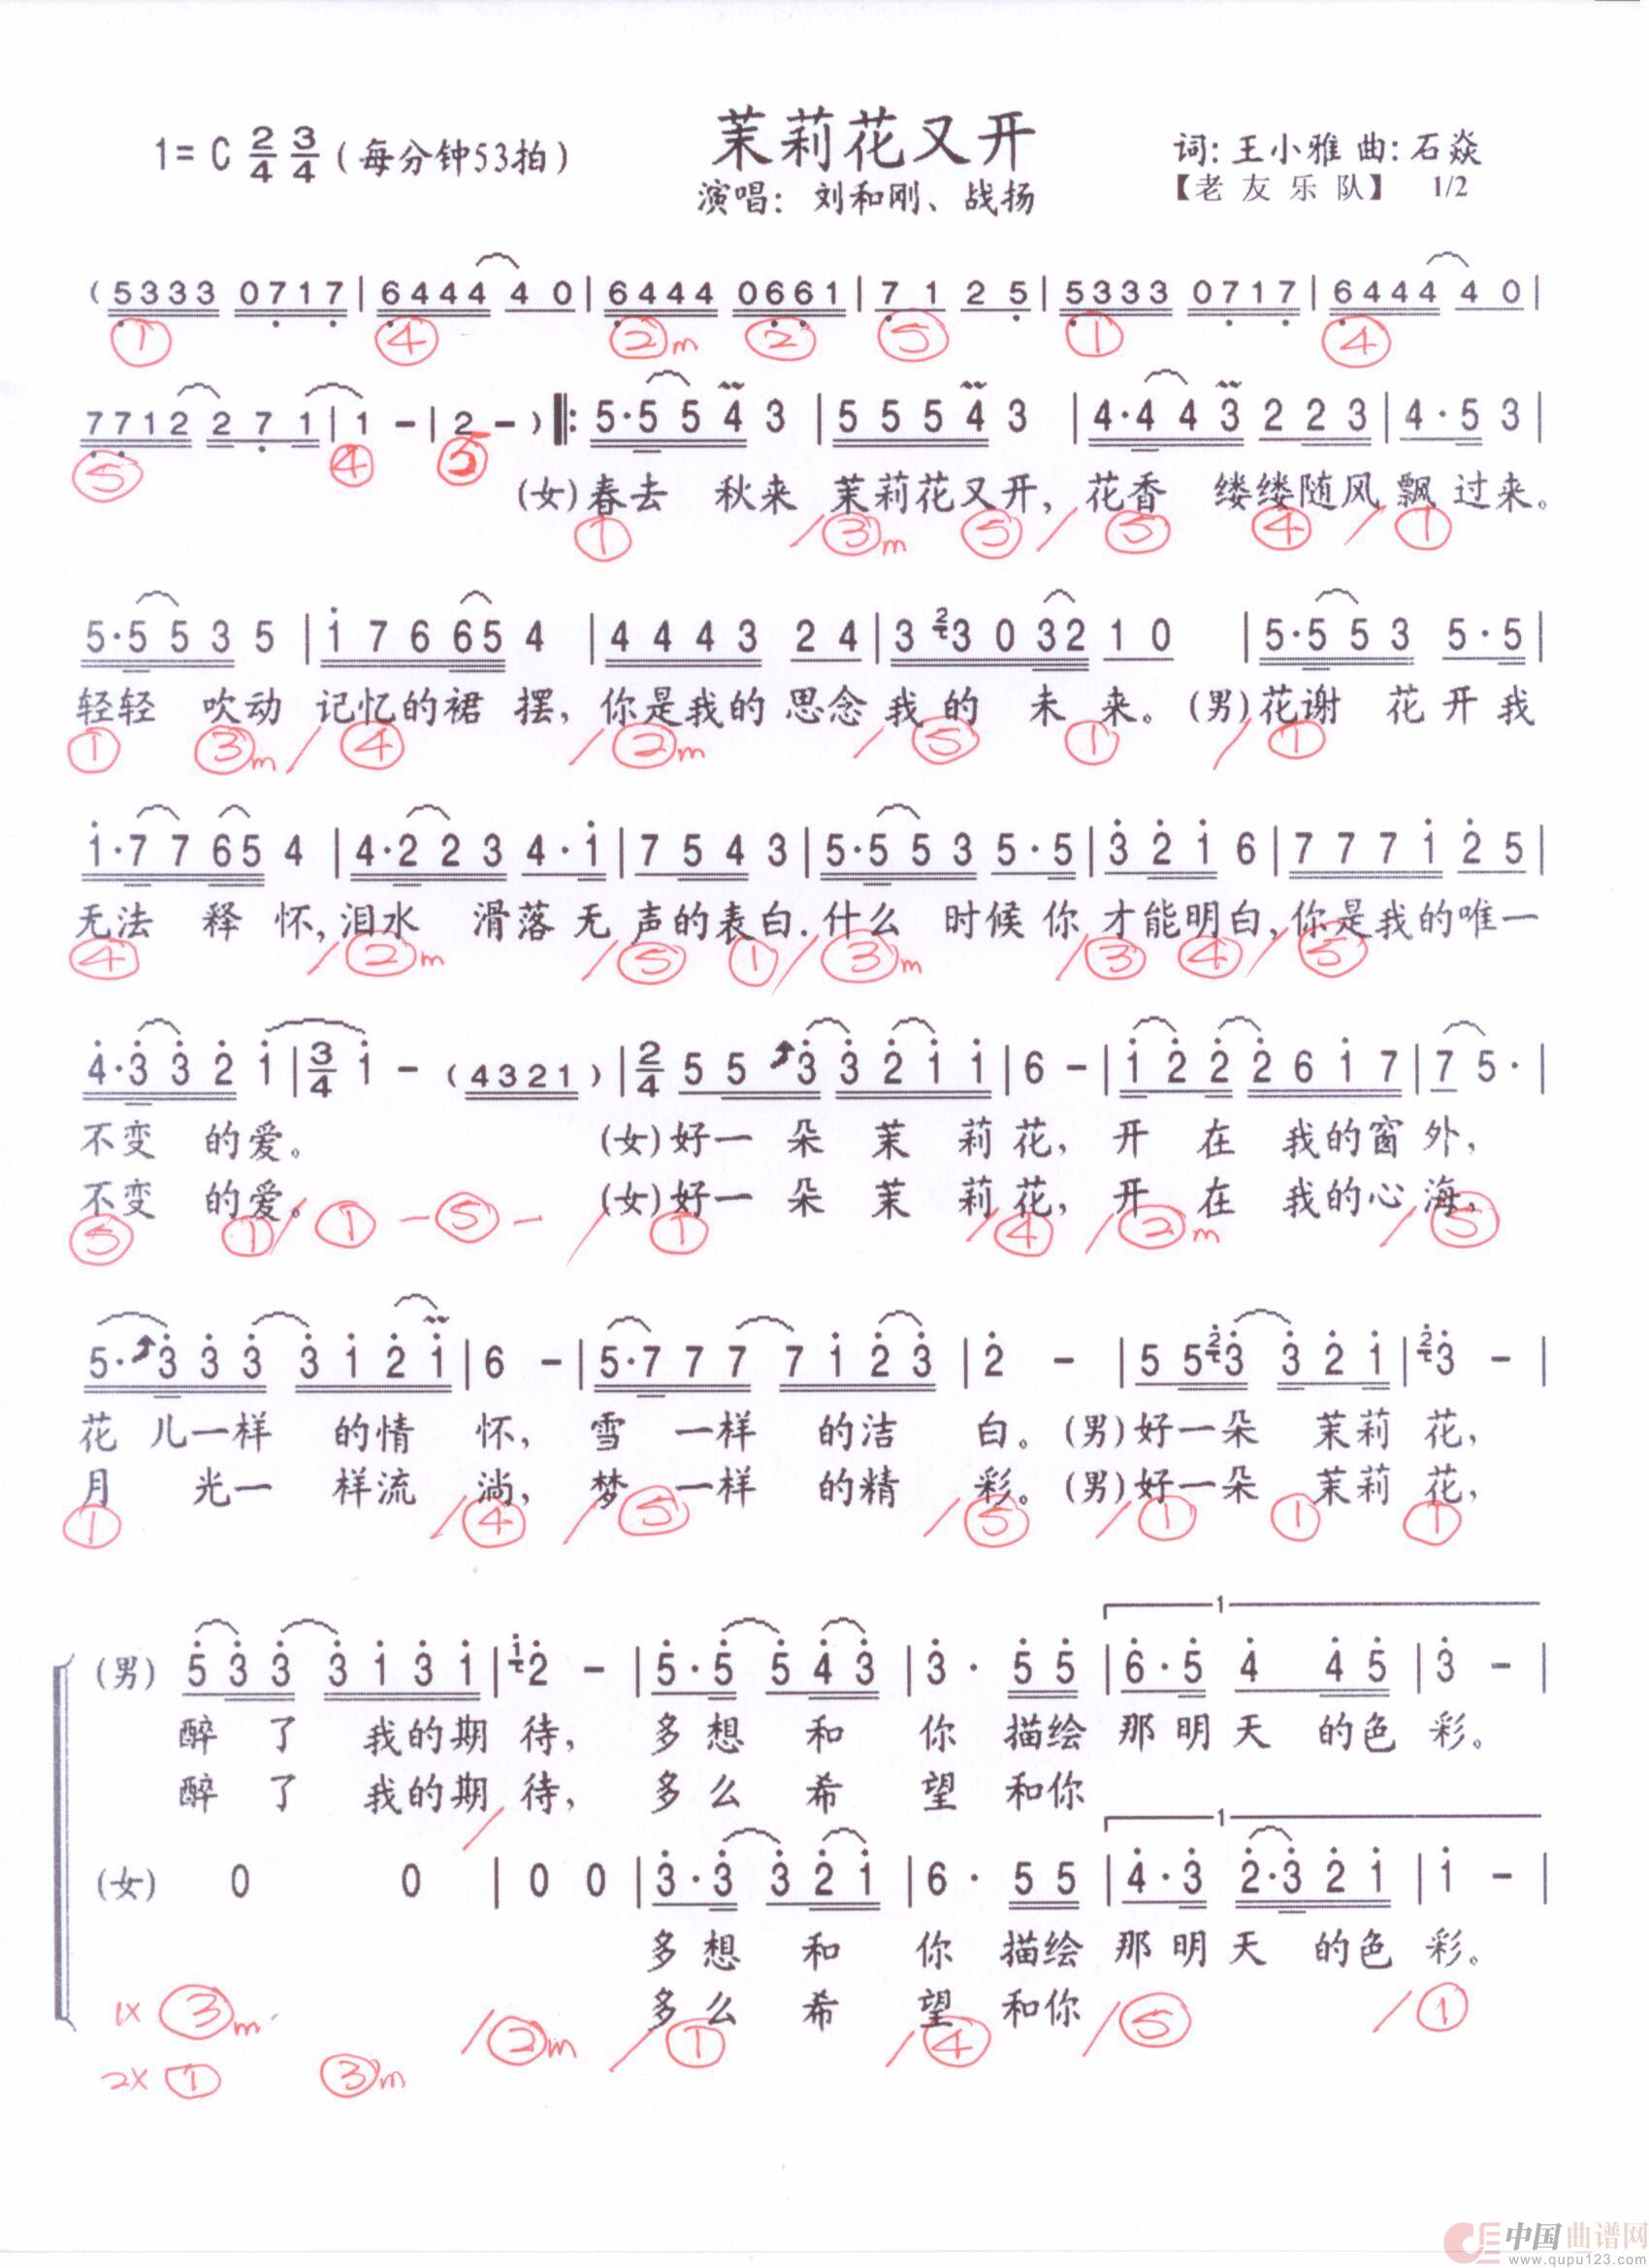 茉莉花又开
1=C 2/4 3/4 (每分钟53拍)
词:王小雅 曲:石焱
演唱: 刘和刚、战扬
【老友乐队】 1/2
(5333 0717|6444 40|6444 0661|71 25|5333 0717|6444 40|
① ④ ②m ② ⑤ ① ④
7712 271|1 -|2 -)‖:5·554 3|5554 3|4·443 223|4·5 3|
⑤ ④ ⑤
(女)春去 秋来 茉莉花又开, 花香 缕缕随风飘过来。
① /③m ⑤ / ⑤ ④ / ①
5·553 5|17665 4|4443 24|3 2 3 0 32 10|5·553 5·5|
轻轻 吹动 记忆的裙 摆, 你是我的思念我的 未 来。(男)花谢 花开我
① ③m / ④ /②m / ⑤ ① / ①
1·7765 4|4·223 4·1|7543|5·553 5·5|3216|7771 25|
无法 释 怀,泪水 滑落无声的表白.什么 时候你才能明白,你是我的唯一
④ /②m /⑤ ① /③m /③ ④ /⑤
4·332 1|3/4 1 - (4321)|2/4 553 3211|6 -|122 2617|75·|
不变 的爱。 (女)好一 朵 茉 莉花, 开 在 我的窗外,
不变 的爱。 (女)好一 朵 茉 莉花, 开 在 我的心海,
⑤ ① / ① - ⑤ - / ① /④ /②m /⑤
5·333 3121|6 -|5·777 7123|2 -|55 2 3 321|2 3 -|
花 儿一样 的情 怀, 雪 一样 的洁 白。(男)好一朵 茉莉 花,
月 光一 样流 淌, 梦 一样 的精 彩。(男)好一朵 茉莉 花,
① /④ /⑤ /⑤ /① ① ①
1
(男) 533 3131|1 2 -|5·5 543|3·55|6·5 4 45|3 -|
醉 了 我的期 待, 多想 和 你 描绘 那明天 的色 彩。
醉 了 我的期 待, 多么 希 望 和你
1
(女) 0 0|0 0|3·3 321|6·55|4·3 2·321|1 -|
多想 和 你 描绘 那明天 的色 彩。
多么 希 望 和你
1x ③m /②m /① /④ /⑤ /①
2x ① ③m
中国曲谱网
www.qupu123.com